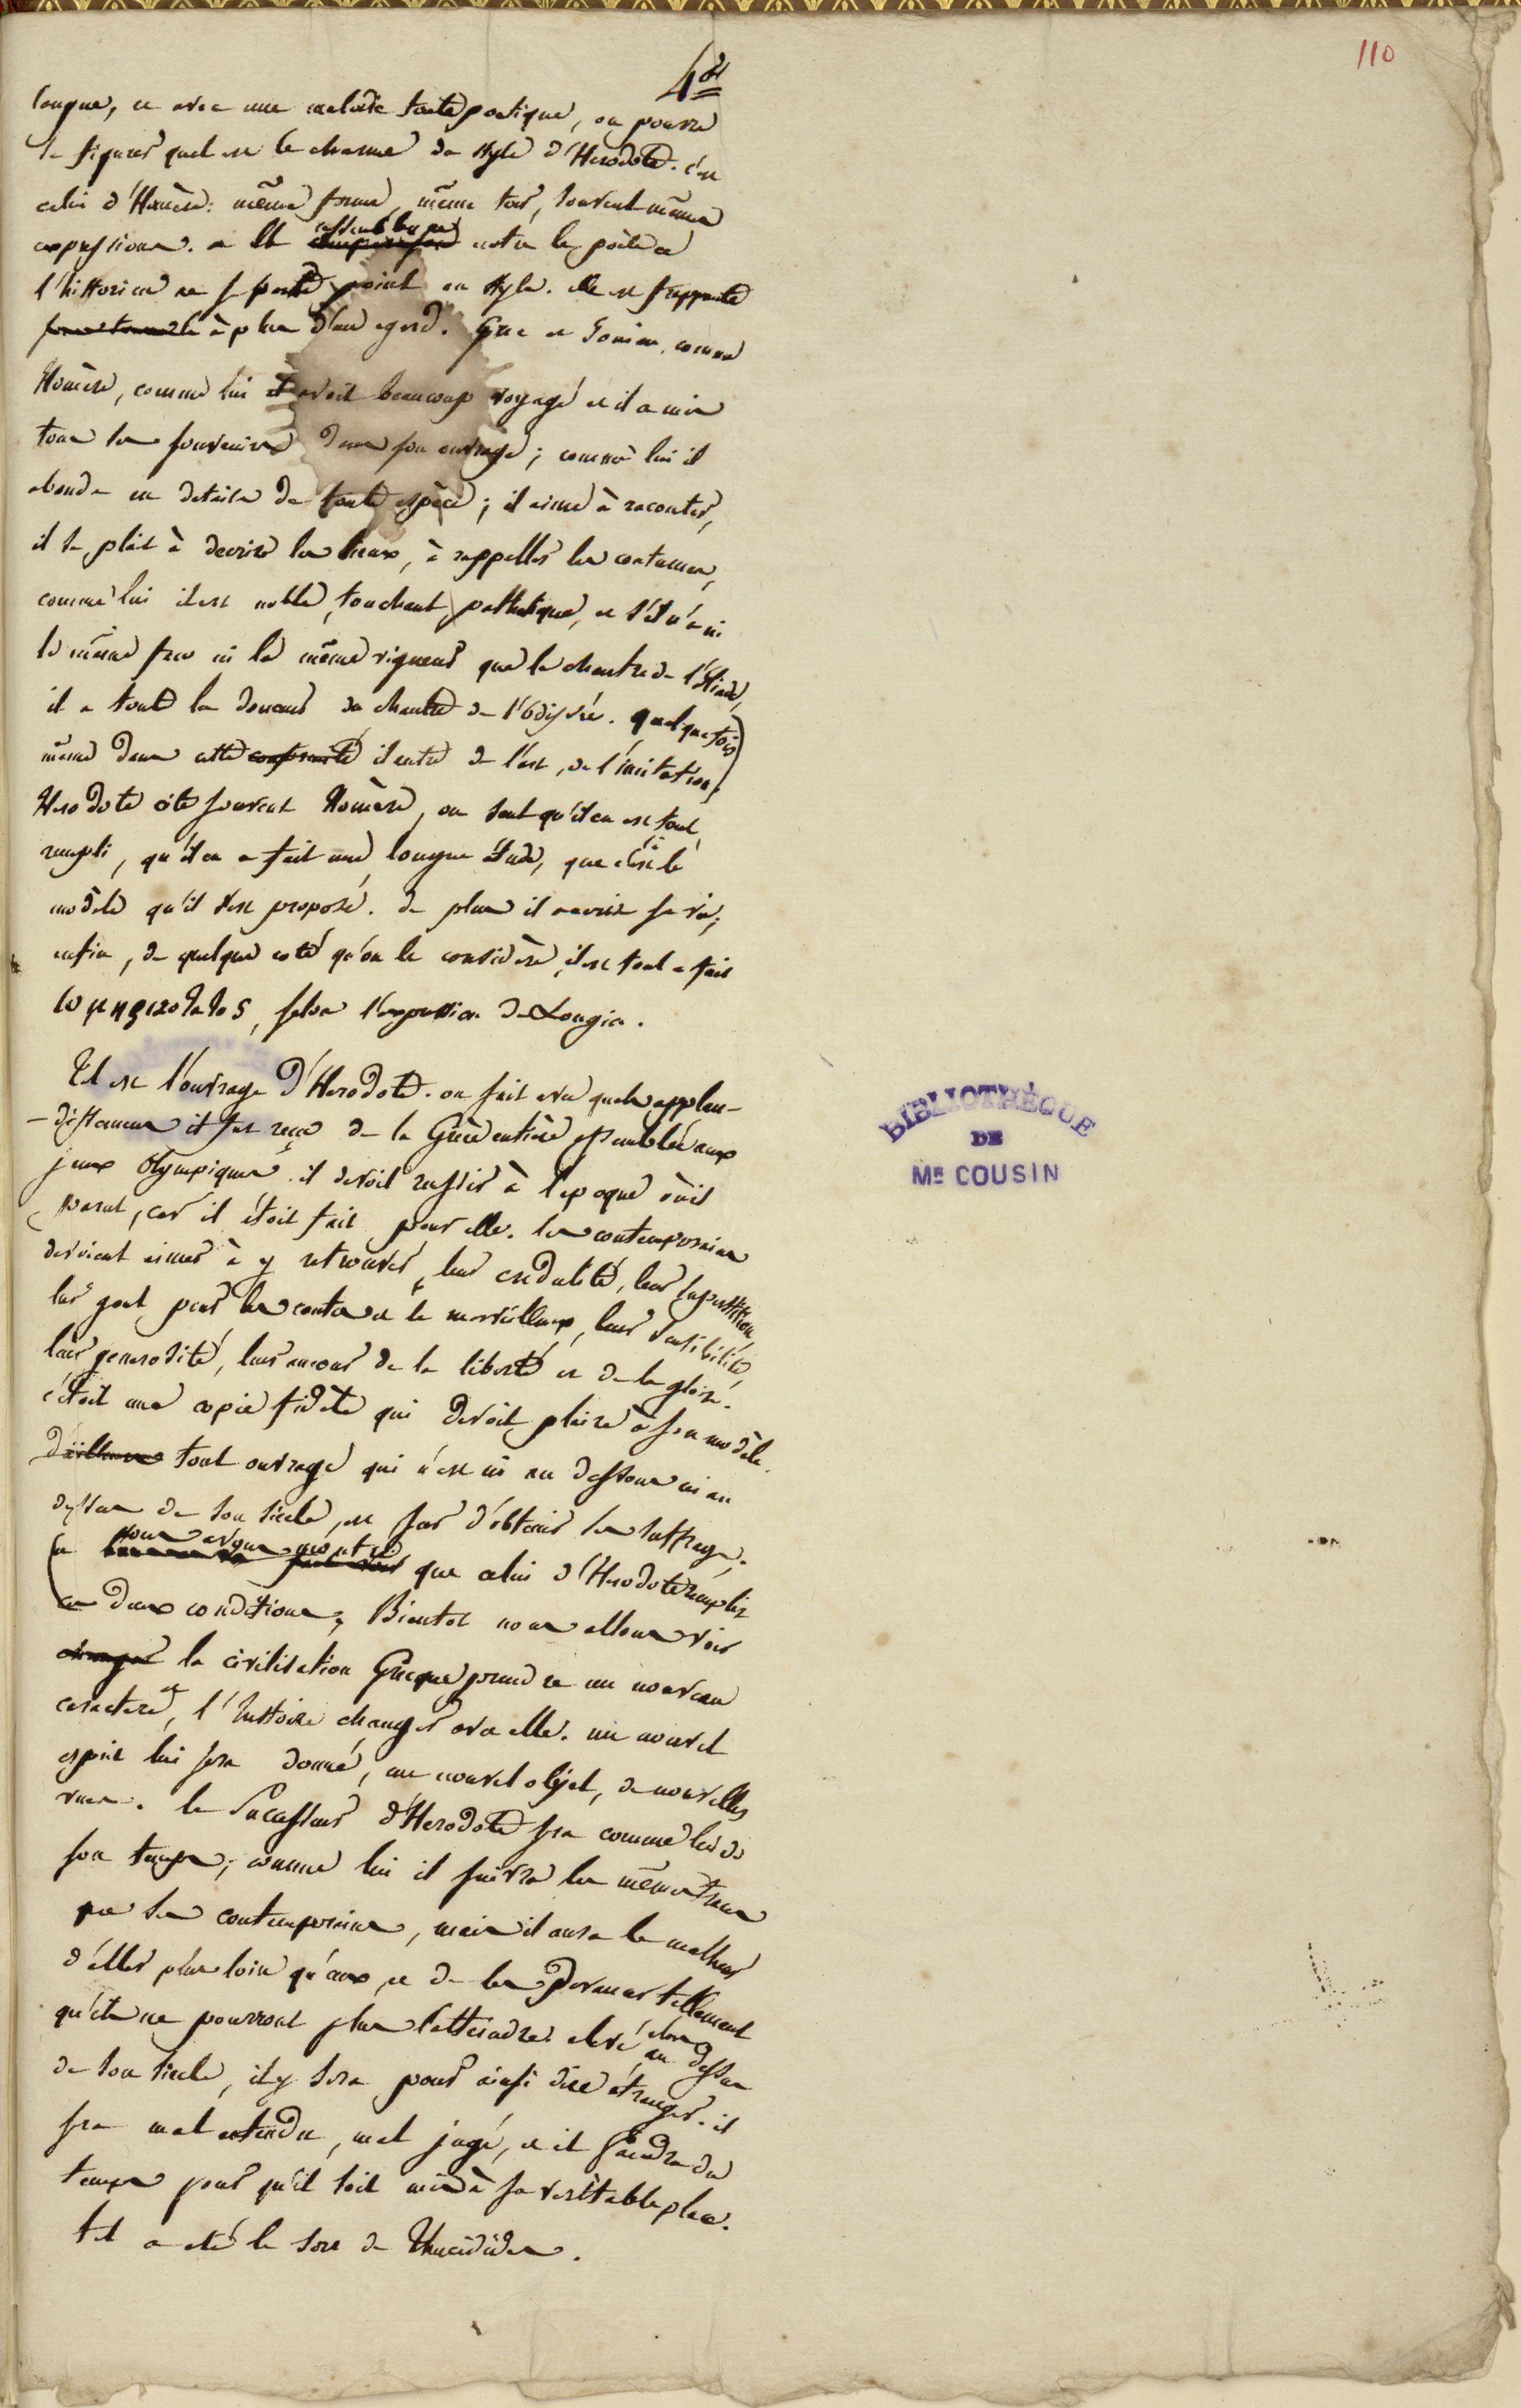 110
4
longue, et avec une melodie toute poetique, on pourra
se figurer quel est le charme du style d'Herodote. c'est
celui d'Homère: même forme, même tour, souvent mêmes
expressions. a la ressemblance entre le poëte et
l'historien ne se porte point au style. elle est frappante
à plus d'un egard. Grec et Ionien, comme
Homère, comme lui il avoit beaucoup voyagé et il a mis
tous ses souvenirs dans son ouvrage; comme lui il
abonde en details de toute espèce; il aime à raconter,
il se plait à decrire les lieux, à rappeller les coutumes,
comme lui il est noble, touchant, pathetique, et s'il n'a ni
le même feu ni la même vigueur que le chantre de l'Iliade,
il a toute la douceur du chantre de l'Odyssée. quelquefois
même dans cette conformité il entre de l'art, de l'imitation.
Herodote cite souvent Homère, on sent qu'il en est tout
rempli, qu'il en a fait une longue étude, que c'est le
modèle qu'il s'est proposé. de plus il a ecrit sa vie;
enfin, de quelque coté qu'on le considère, il est tout a fait
ομηρικοτατος, selon l'expression de Longin.
Tel est l'ouvrage d'Herodote. on sait avec quels applau-
-dissemens il fut reçu de la Grèce entière assemblée aux
jeux Olympiques. il devoit reussir à l'epoque où il
parut, car il étoit fait pour elle. les contemporains
devoient aimer à y retrouver leur credulité, leur superstition,
leur gout pour les contes et le merveilleux, leur sensibilité,
leur generosité, leur amour de la liberté et de la gloire.
c'étoit une copie fidele qui devoit plaire à son modèle.
D'ailleurs tout ouvrage qui n'est ni au dessous ni au
dessus de son siecle, est sur d'obtenir les suffrages.
nous avons montré que celui d'Herodote remplit
ces deux conditions. Bientot nous allons voir
changer la civilisation Grecque prendre un nouveau
caractere, et l'histoire changer avec elle. un nouvel
esprit lui sera donné, un nouvel objet, de nouvelles
vues. le Successeur d'Herodote sera comme lui de
son temps; comme lui il suivra la même route
que ses contemporains, mais il aura le malheur
d'aller plus loin qu'eux, et de les devancer tellement
qu'ils ne pourront plus l'atteindre. elevé alors au dessus
de son siecle, il y sera pour ainsi dire étranger. il
sera mal entendu, mal jugé, et il faudra du
temps pour qu'il soit mis à sa veritable place.
tel a eté le sort de Thucidides.
BIBLIOTHÈQUE
DE
MR COUSIN